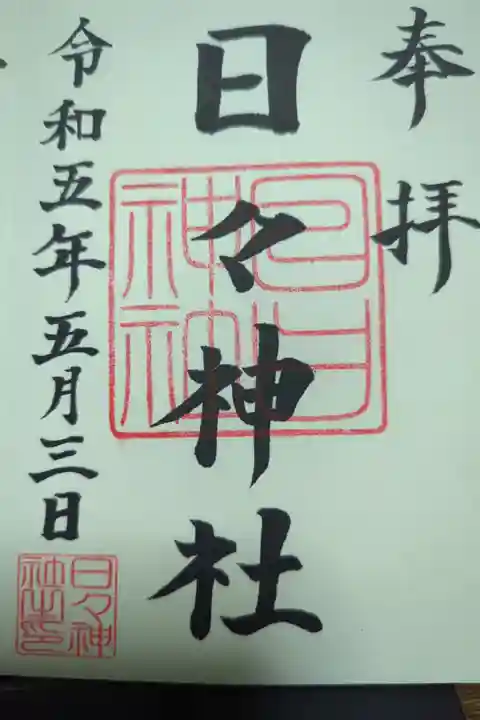 奉拝
日々神社
令和五年五月三日
日々神
社之印